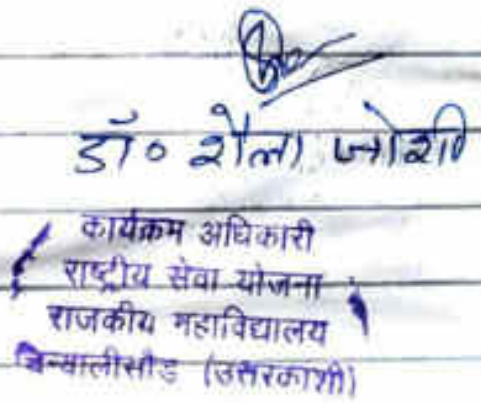 डॉ० शैला जोशी
कार्यक्रम अधिकारी
राष्ट्रीय सेवा योजना
राजकीय महाविद्यालय
चिन्यालीसौड (उत्तरकाशी)